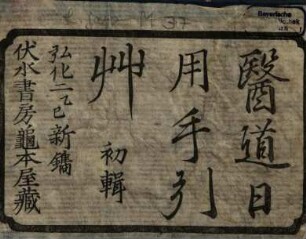 醫道日
用手引
艸 初輯
弘化二乙巳新鐫
伏水書房龜本屋藏
Bayerische